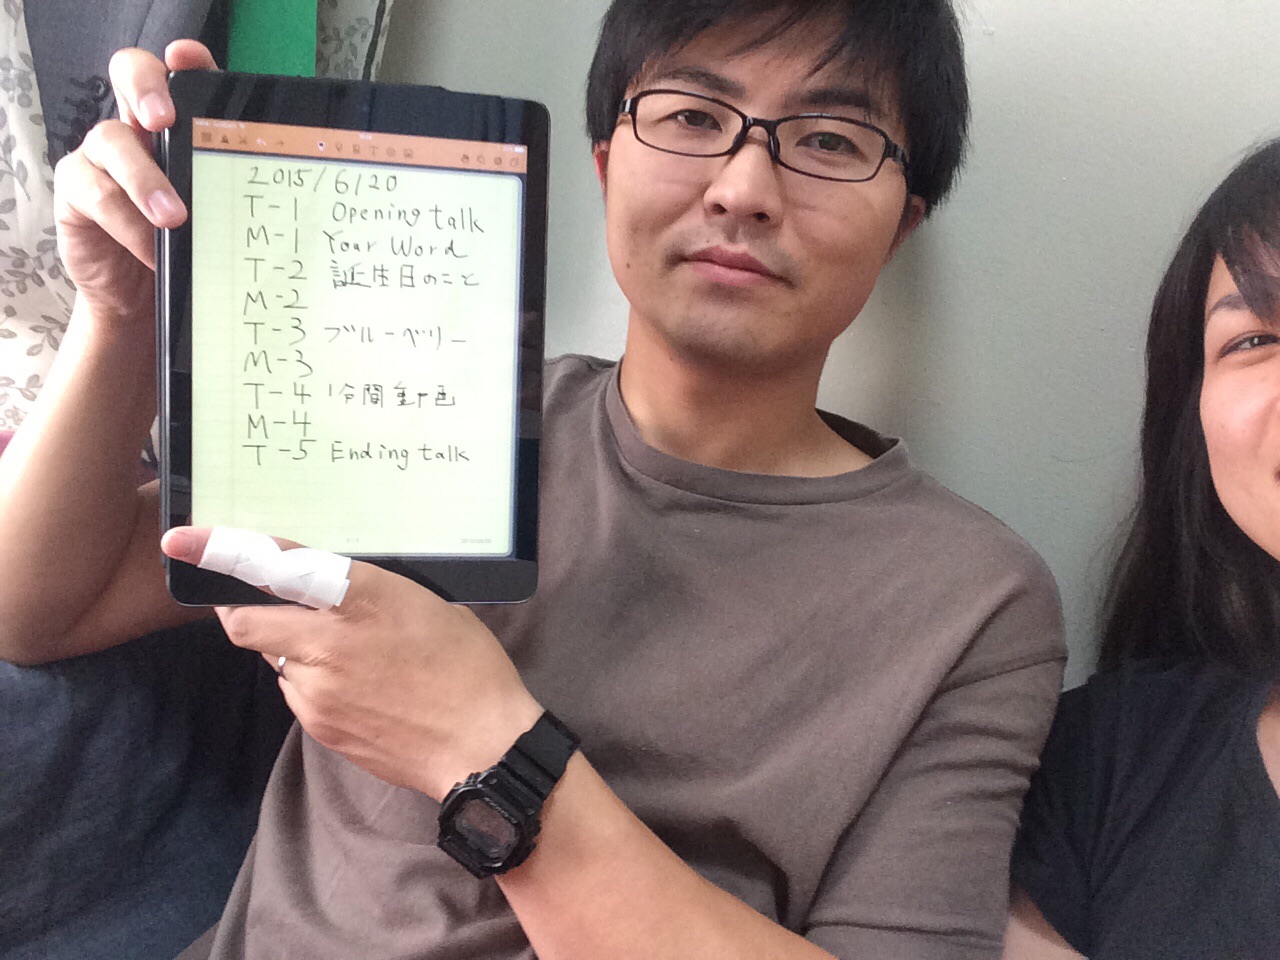 2015/6/20
T-1 Opening talk
M-1 Your Word
T-2 誕生日のこと
M-2
T-3 ブルーベリー
M-3
T-4 1分間動画
M-4
T-5 Ending talk